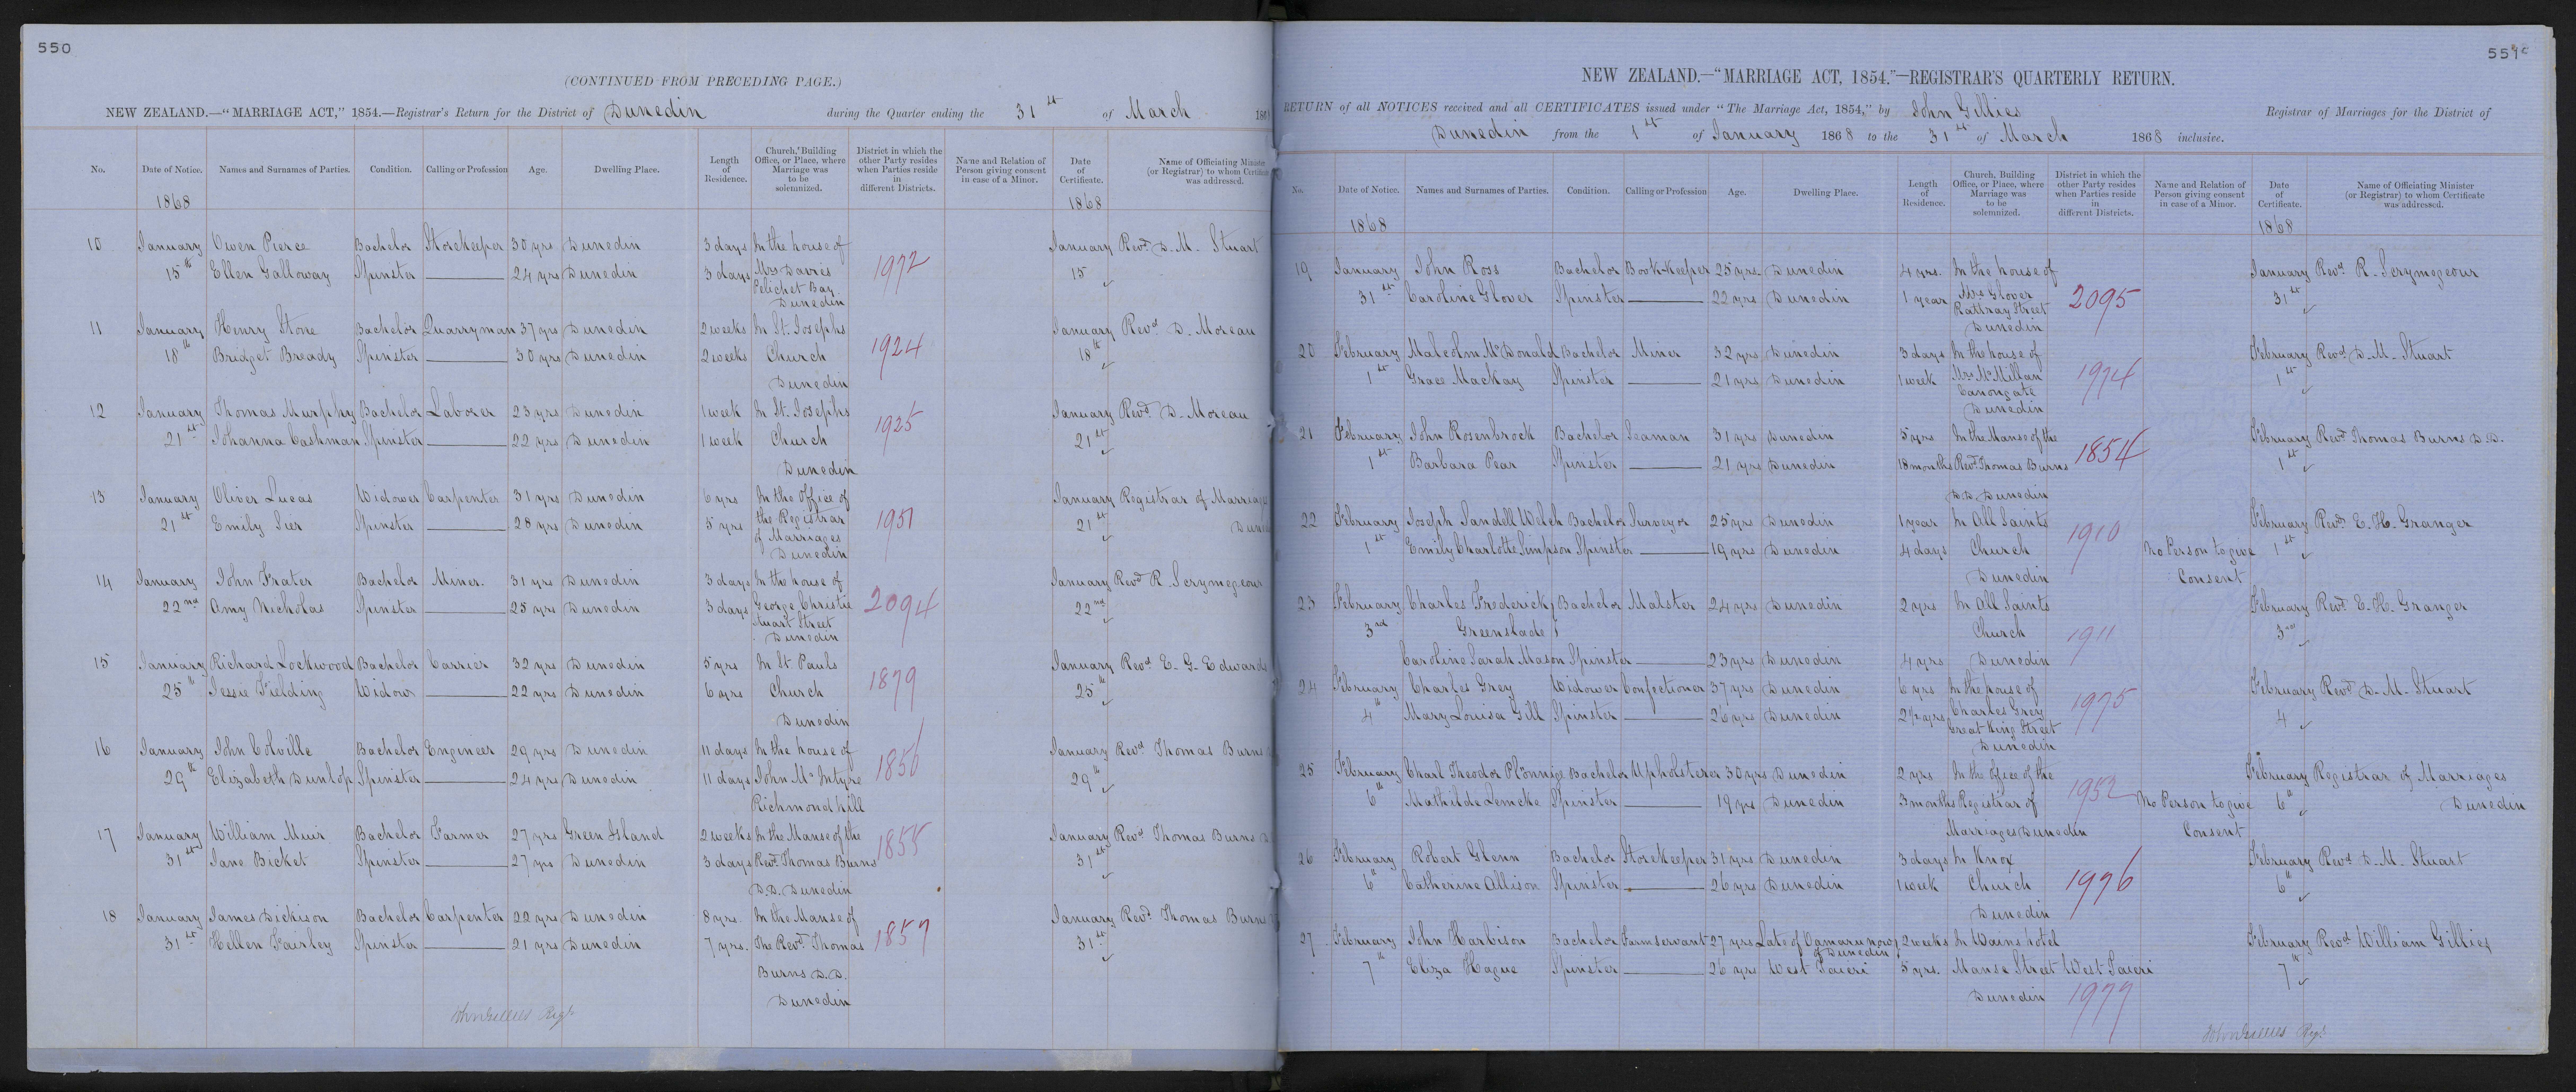 550
(CONTINUED FROM PRECEDING PAGE.)
NEW ZEALAND.—"MARRIAGE ACT," 1854.—Registrar's Return for the District of Dunedin during the Quarter ending the 31st of March 186
No. Date of Notice. Names and Surnames of Parties. Condition. Calling or Profession Age. Dwelling Place. Length of Residence. Church, Building Office, or Place, where Marriage was to be solemnized. District in which the other Party resides when Parties reside in different Districts. Name and Relation of Person giving consent in case of a Minor. Date of Certificate. Name of Officiating Minister (or Registrar) to whom Certificate was addressed.
1868 1868
10 January Owen Pierce Bachelor Storekeeper 30 yrs Dunedin 3 days In the house of January Revd. D. M. Stuart
15th Ellen Galloway Spinster 24 yrs Dunedin 3 days Mrs Davies 1972 15
Pelichet Bay
Dunedin
11 January Henry Stone Bachelor Quarryman 37 yrs Dunedin 2 weeks In St. Josephs January Revd. D. Moreau
18th Bridget Bready Spinster 30 yrs Dunedin 2 weeks Church 1924 18th
Dunedin
12 January Thomas Murphy Bachelor Laborer 23 yrs Dunedin 1 week In St. Josephs January Revd. D. Moreau
21st Johanna Cashman Spinster 22 yrs Dunedin 1 week Church 1925 21st
Dunedin
13 January Oliver Lucas Widower Carpenter 31 yrs Dunedin 6 yrs In the Office of January Registrar of Marriages
21st Emily Sier Spinster 28 yrs Dunedin 5 yrs the Registrar 1951 21st
of Marriages
Dunedin
14 January John Frater Bachelor Miner. 31 yrs Dunedin 3 days In the house of January Revd R. Scrymegeour
22nd Amy Nicholas Spinster 25 yrs Dunedin 3 days George Christie 2094 22nd
Stuart Street
Dunedin
15 January Richard Lockwood Bachelor Carrier 32 yrs Dunedin 5 yrs In St Pauls January Revd E. G. Edwards
25th Jessie Fielding Widow 22 yrs Dunedin 6 yrs Church 1879 25th
Dunedin
16 January John Colville Bachelor Engineer 29 yrs Dunedin 11 days In the house of January Revd Thomas Burns
29th Elizabeth Dunlop Spinster 24 yrs Dunedin 11 days John McIntyre 1856 29th
Richmond hill
17 January William Muir Bachelor Farmer 27 yrs Green Island 2 weeks In the Manse of the January Revd Thomas Burns
31st Jane Bicket Spinster 27 yrs Dunedin 3 days Revd. Thomas Burns 1858 31st
D.D. Dunedin
18 January James Dickison Bachelor Carpenter 22 yrs Dunedin 8 yrs. In the Manse of January Revd. Thomas Burns
31st Hellen Fairley Spinster 21 yrs Dunedin 7 yrs. The Revd. Thomas 1857 31st
Burns D.D.
Dunedin
John Gillies Regr
551
NEW ZEALAND.—"MARRIAGE ACT, 1854."—REGISTRAR'S QUARTERLY RETURN.
RETURN of all NOTICES received and all CERTIFICATES issued under "The Marriage Act, 1854," by John Gillies Registrar of Marriages for the District of
Dunedin from the 1st of January 1868 to the 31st of March 1868 inclusive.
No. Date of Notice. Names and Surnames of Parties. Condition. Calling or Profession Age. Dwelling Place. Length of Residence. Church, Building Office, or Place, where Marriage was to be solemnized. District in which the other Party resides when Parties reside in different Districts. Name and Relation of Person giving consent in case of a Minor. Date of Certificate. Name of Officiating Minister (or Registrar) to whom Certificate was addressed.
1868 1868
19 January John Ross Bachelor Book-keeper 25 yrs Dunedin 4 yrs. In the house of January Revd. R. Scrymegeour
31st Caroline Glover Spinster 22 yrs Dunedin 1 year Mrs Glover 2095 31st
Rattray Street
Dunedin
20 February Malcolm McDonald Bachelor Miner 32 yrs Dunedin 3 days In the house of February Revd D. M. Stuart
1st Grace Mackay Spinster 21 yrs Dunedin 1 week Mrs McMillan 1974 1st
Canongate
Dunedin
21 February John Rosenbrock Bachelor Seaman 31 yrs Dunedin 5 yrs In the Manse of the February Revd Thomas Burns D.D.
1st Barbara Pear Spinster 21 yrs Dunedin 18 months Revd. Thomas Burns 1854 1st
D.D. Dunedin
22 February Joseph Sandell Welch Bachelor Surveyor 25 yrs Dunedin 1 year In All Saints February Revd. E. H. Granger
1st Emily Charlotte Simpson Spinster 19 yrs Dunedin 4 days Church 1910 No Person to give 1st
Dunedin Consent
23 February Charles Frederick Bachelor Malster 24 yrs Dunedin 2 yrs In All Saints February Revd. E. H. Granger
3rd Greenslade Church 1911 3rd
Caroline Sarah Mason Spinster 23 yrs Dunedin 4 yrs Dunedin
24 February Charles Grey Widower Confectioner 37 yrs Dunedin 6 yrs In the house of February Revd. D. M. Stuart
4th Mary Louisa Gill Spinster 26 yrs Dunedin 2½ yrs Charles Grey 1975 4
Great King Street
Dunedin
25 February Charl Theodor Plönnigs Bachelor Upholsterer 30 yrs Dunedin 2 yrs. In the office of the February Registrar of Marriages
6th Mathilde Lemcke Spinster 19 yrs Dunedin 3 months Registrar of 1952 No Person to give 6th Dunedin
Marriages Dunedin Consent
26 February Robert Glenn Bachelor Storekeeper 31 yrs Dunedin 3 days In Knox February Revd D. M. Stuart
6th Catherine Allison Spinster 26 yrs Dunedin 1 week Church 1976 6th
Dunedin
27 February John Harbison Bachelor Farm servant 27 yrs Late of Oamaru now of Dunedin 2 weeks In Wains hotel February Revd William Gillies
7th Eliza Hague Spinster 26 yrs West Taieri 5 yrs. Manse Street West Taieri 7th
Dunedin 1977
John Gillies Regr